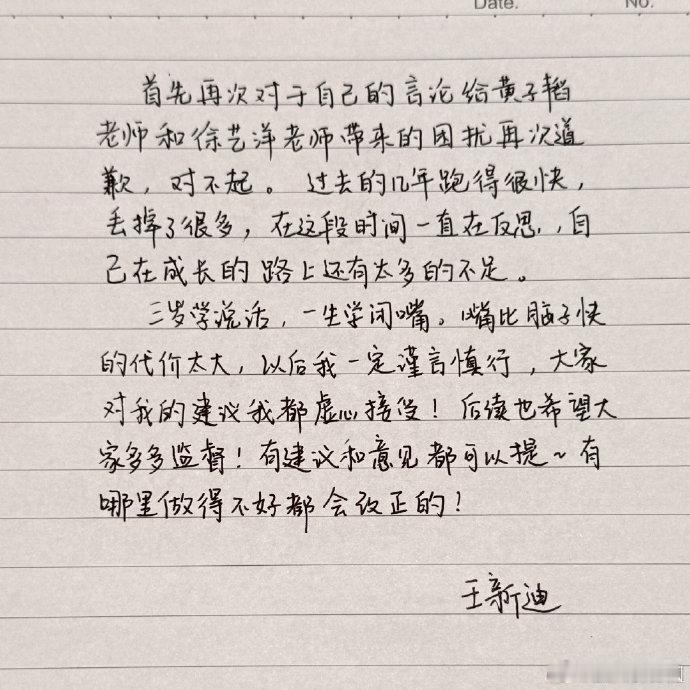 Date.
No.
首先再次对于自己的言论给黄子韬
老师和徐艺洋老师带来的困扰再次道
歉，对不起。过去的几年跑得很快，
丢掉了很多，在这段时间一直在反思，自
己在成长的路上还有太多的不足。
三岁学说话，一生学闭嘴。嘴比脑子快
的代价太大，以后我一定谨言慎行，大家
对我的建议我都虚心接受！后续也希望大
家多多监督！有建议和意见都可以提~有
哪里做得不好都会改正的！
王新迪